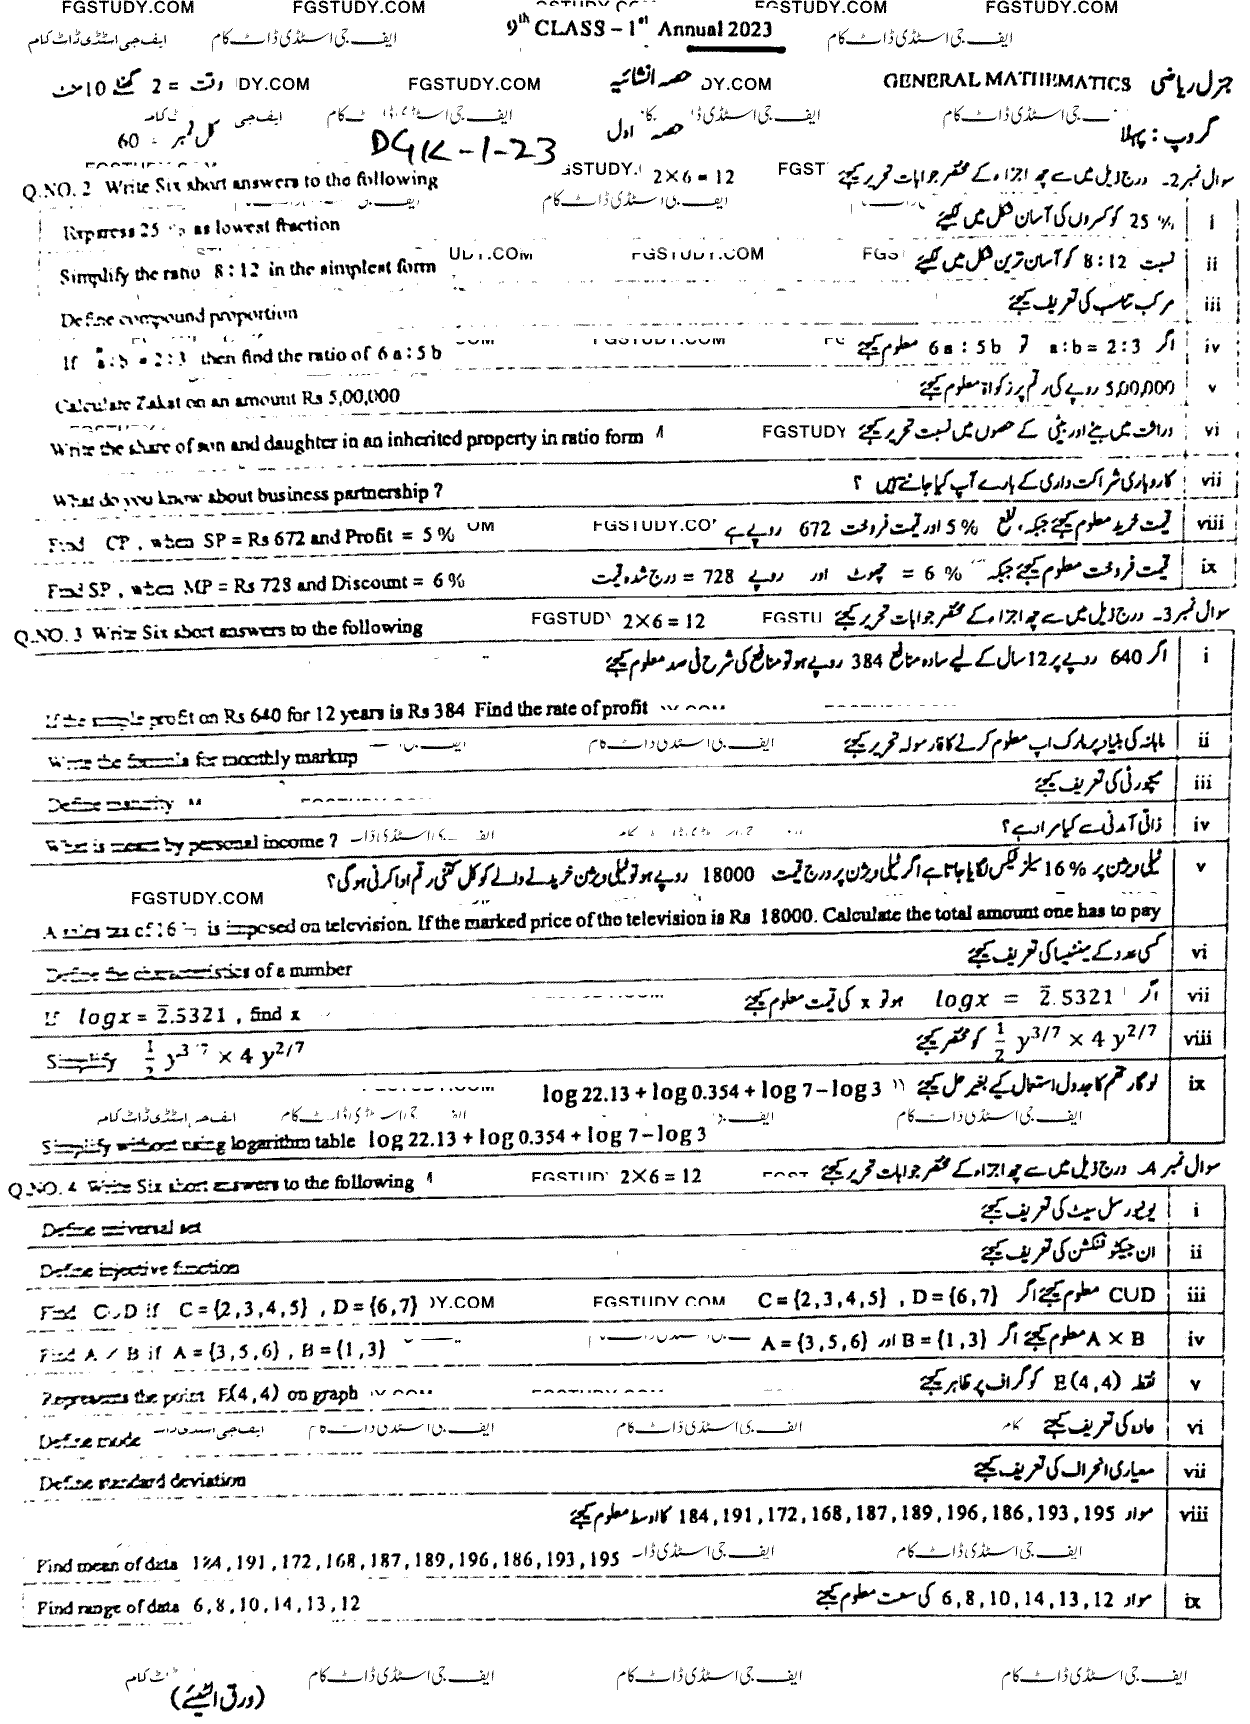 FGSTUDY.COM FGSTUDY.COM FGSTUDY.COM FGSTUDY.COM
9th CLASS – 1st Annual 2023
ایف جی اسٹڈی ڈاٹ کام ایف جی اسٹڈی ڈاٹ کام ایف جی اسٹڈی ڈاٹ کام
جنرل ریاضی GENERAL MATHEMATICS حصہ انشائیہ وقت = 2 گھنٹے 10 منٹ
DY.COM FGSTUDY.COM DY.COM
گروپ : پہلا حصہ اول کل نمبر = 60
DGK-1-23
Q.NO. 2 Write Six short answers to the following 2×6=12 سوال نمبر 2۔ درج ذیل میں سے چھ اجزاء کے مختصر جوابات تحریر کیجئے
i 25 % کو کسروں کی آسان شکل میں لکھیئے
Express 25 % as lowest fraction
ii نسبت 8:12 کو آسان ترین شکل میں لکھیئے
Simplify the ratio 8:12 in the simplest form
iii مرکب تناسب کی تعریف کیجئے
Define compound proportion
iv اگر a:b = 2:3 تو 6a : 5b معلوم کیجئے
If a:b = 2:3 then find the ratio of 6 a : 5 b
v 5,00,000 روپے کی رقم پر زکواۃ معلوم کیجئے
Calculate Zakat on an amount Rs 5,00,000
vi وراثت میں بیٹے اور بیٹی کے حصوں میں نسبت تحریر کیجئے FGSTUDY
Write the share of son and daughter in an inherited property in ratio form
vii کاروباری شراکت داری کے بارے آپ کیا جانتے ہیں ؟
What do you know about business partnership ?
viii قیمت خرید معلوم کیجئے جبکہ، نفع 5 % اور قیمت فروخت 672 روپے ہے
Find CP , when SP = Rs 672 and Profit = 5 %
ix قیمت فروخت معلوم کیجئے جبکہ 6 % = چھوٹ اور روپے 728 = درج شدہ قیمت
Find SP , when MP = Rs 728 and Discount = 6 %
Q.NO. 3 Write Six short answers to the following 2×6=12 سوال نمبر 3۔ درج ذیل میں سے چھ اجزاء کے مختصر جوابات تحریر کیجئے
i اگر 640 روپے پر 12 سال کے لیے سادہ منافع 384 روپے ہو تو منافع کی شرح فی صد معلوم کیجئے
If the simple profit on Rs 640 for 12 years is Rs 384 Find the rate of profit
ii ماہانہ کی بنیاد پر مارک اپ معلوم کرنے کا فارمولہ تحریر کیجئے
Write the formula for monthly markup
iii میچورٹی کی تعریف کیجئے
Define maturity
iv ذاتی آمدنی سے کیا مراد ہے؟
What is meant by personal income ?
v ٹیلی ویژن پر 16 % سیلز ٹیکس لگایا جاتا ہے اگر ٹیلی ویژن پر درج قیمت 18000 روپے ہو تو ٹیلی ویژن خریدنے والے کو کل کتنی رقم ادا کرنی ہوگی؟
FGSTUDY.COM
A sales tax of 16 % is imposed on television. If the marked price of the television is Rs 18000. Calculate the total amount one has to pay
vi کسی عدد کے مینٹیسا کی تعریف کیجئے
Define the characteristics of a number
vii اگر logx = 2̄.5321 ہو تو x کی قیمت معلوم کیجئے
If logx = 2̄.5321 , find x
viii 1/2 y^3/7 × 4 y^2/7 کو مختصر کیجئے
Simplify 1/2 y^3/7 × 4 y^2/7
ix لوگارتھم کا جدول استعمال کے بغیر حل کیجئے log 22.13 + log 0.354 + log 7 – log 3
Simplify without using logarithm table log 22.13 + log 0.354 + log 7 – log 3
Q.NO. 4 Write Six short answers to the following 2×6=12 سوال نمبر 4۔ درج ذیل میں سے چھ اجزاء کے مختصر جوابات تحریر کیجئے
i یونیورسل سیٹ کی تعریف کیجئے
Define universal set
ii ان جیکٹو فنکشن کی تعریف کیجئے
Define injective function
iii CUD معلوم کیجئے اگر C = {2,3,4,5} , D = {6,7}
Find CUD if C = {2,3,4,5} , D = {6,7}
iv A × B معلوم کیجئے اگر B = {1,3} اور A = {3,5,6}
Find A × B if A = {3,5,6} , B = {1,3}
v نقطہ E(4,4) کو گراف پر ظاہر کیجئے
Represents the point E(4,4) on graph
vi عادہ کی تعریف کیجئے
Define mode
vii معیاری انحراف کی تعریف کیجئے
Define standard deviation
viii مواد 184,191,172,168,187,189,196,186,193,195 کا اوسط معلوم کیجئے
Find mean of data 184,191,172,168,187,189,196,186,193,195
ix مواد 6,8,10,14,13,12 کی سعت معلوم کیجئے
Find range of data 6,8,10,14,13,12
ایف جی اسٹڈی ڈاٹ کام ایف جی اسٹڈی ڈاٹ کام ایف جی اسٹڈی ڈاٹ کام
(ورق الٹیئے)